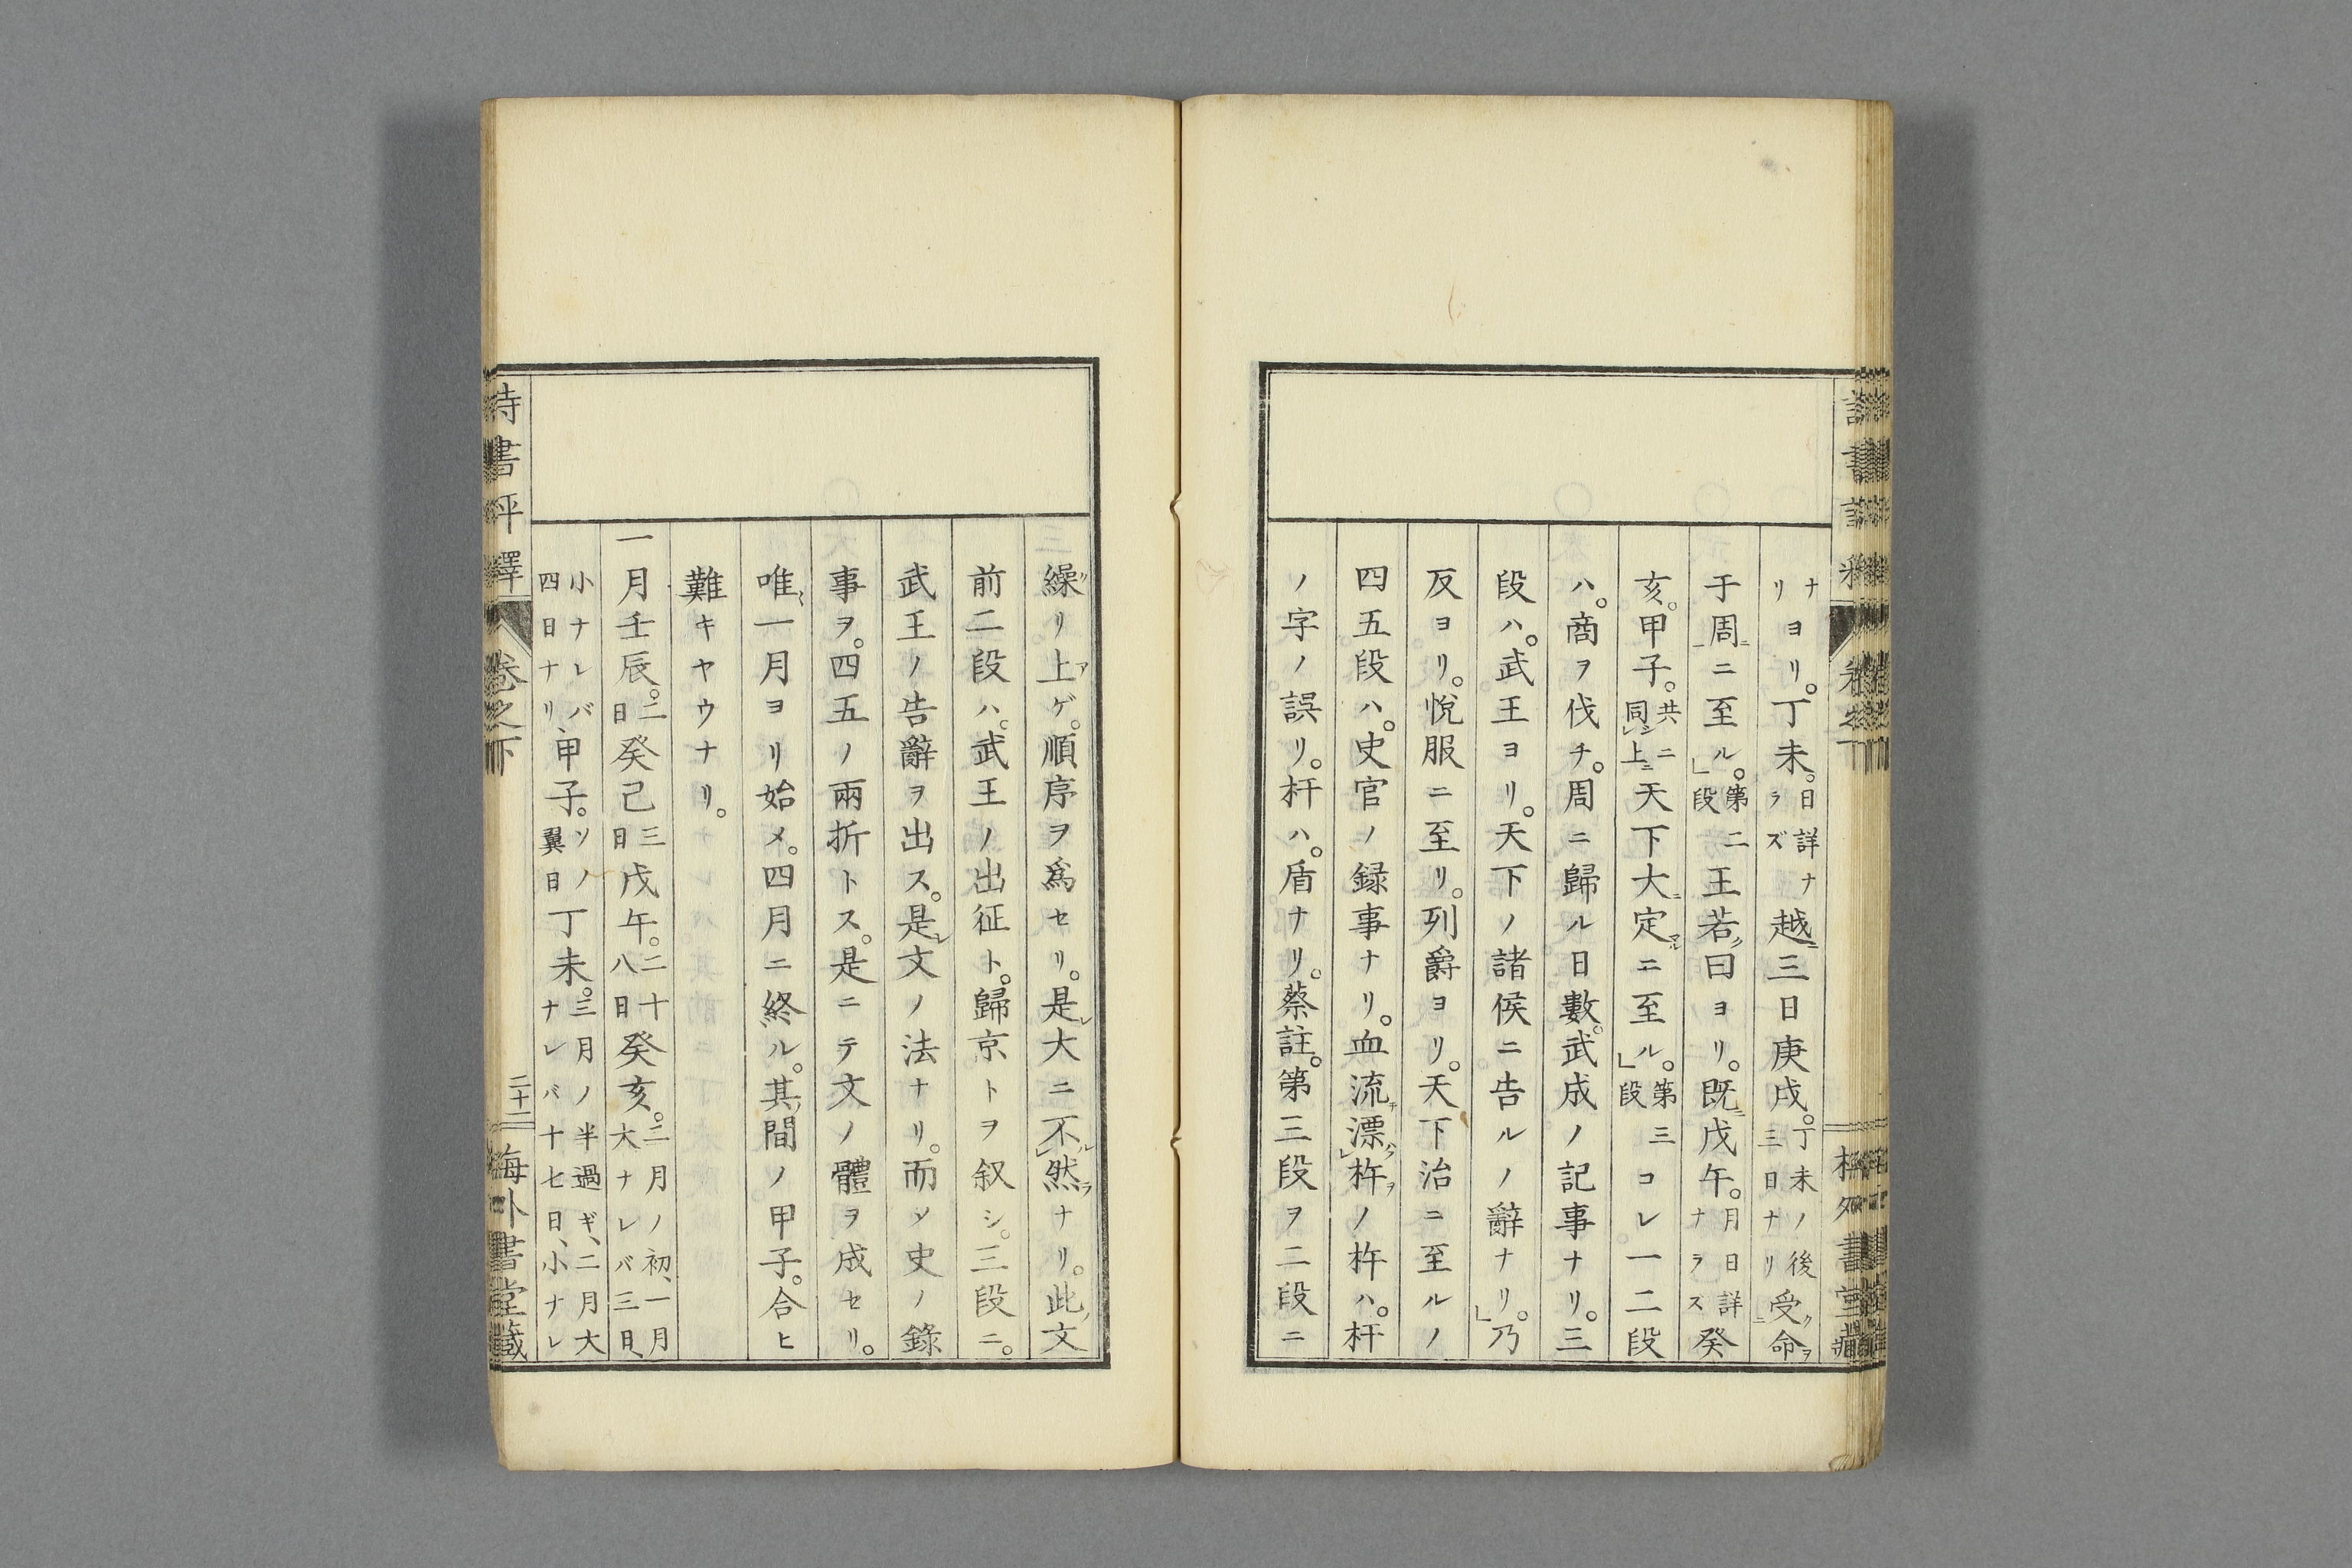 ナリヨリ。丁未。日詳ナラズ越三日庚戌。丁未ノ後三日ナリ受命
于周ニ至ル。第二段王若曰ヨリ。既戊午。月日詳ナラズ癸
亥。甲子。共ニ同上天下大定ニ至ル。第三段コレ一二段
ハ。商ヲ伐チ。周ニ歸ル日數。武成ノ記事ナリ。三
段ハ。武王ヨリ。天下ノ諸侯ニ告ルノ辭ナリ。乃
反ヨリ。悅服ニ至リ。列爵ヨリ。天下治ニ至ルノ
四五段ハ。史官ノ録事ナリ。血流漂杵ノ杵ハ。杆
ノ字ノ誤リ。杆ハ。盾ナリ。蔡註。第三段ヲ二段ニ
繰リ上ゲ。順序ヲ爲セリ。是大ニ不然ナリ。此文
前二段ハ。武王ノ出征ト。歸京トヲ叙シ。三段ニ。
武王ノ告辭ヲ出ス。是文ノ法ナリ。而ソ史ノ錄
事ヲ。四五ノ兩折トス。是ニテ文ノ體ヲ成セリ。
唯一月ヨリ始メ。四月ニ終ル。其間ノ甲子。合ヒ
難キヤウナリ。
一月壬辰。二日癸己三日戊午。二十八日癸亥。二月ノ初、一月大ナレバ三日、
小ナレバ四日ナリ、甲子。ソノ翼日丁未。三月ノ半過ギ、二月大ナレバ十七日、小ナレ
詩書評釋 卷之下 二十二 梅外書堂藏